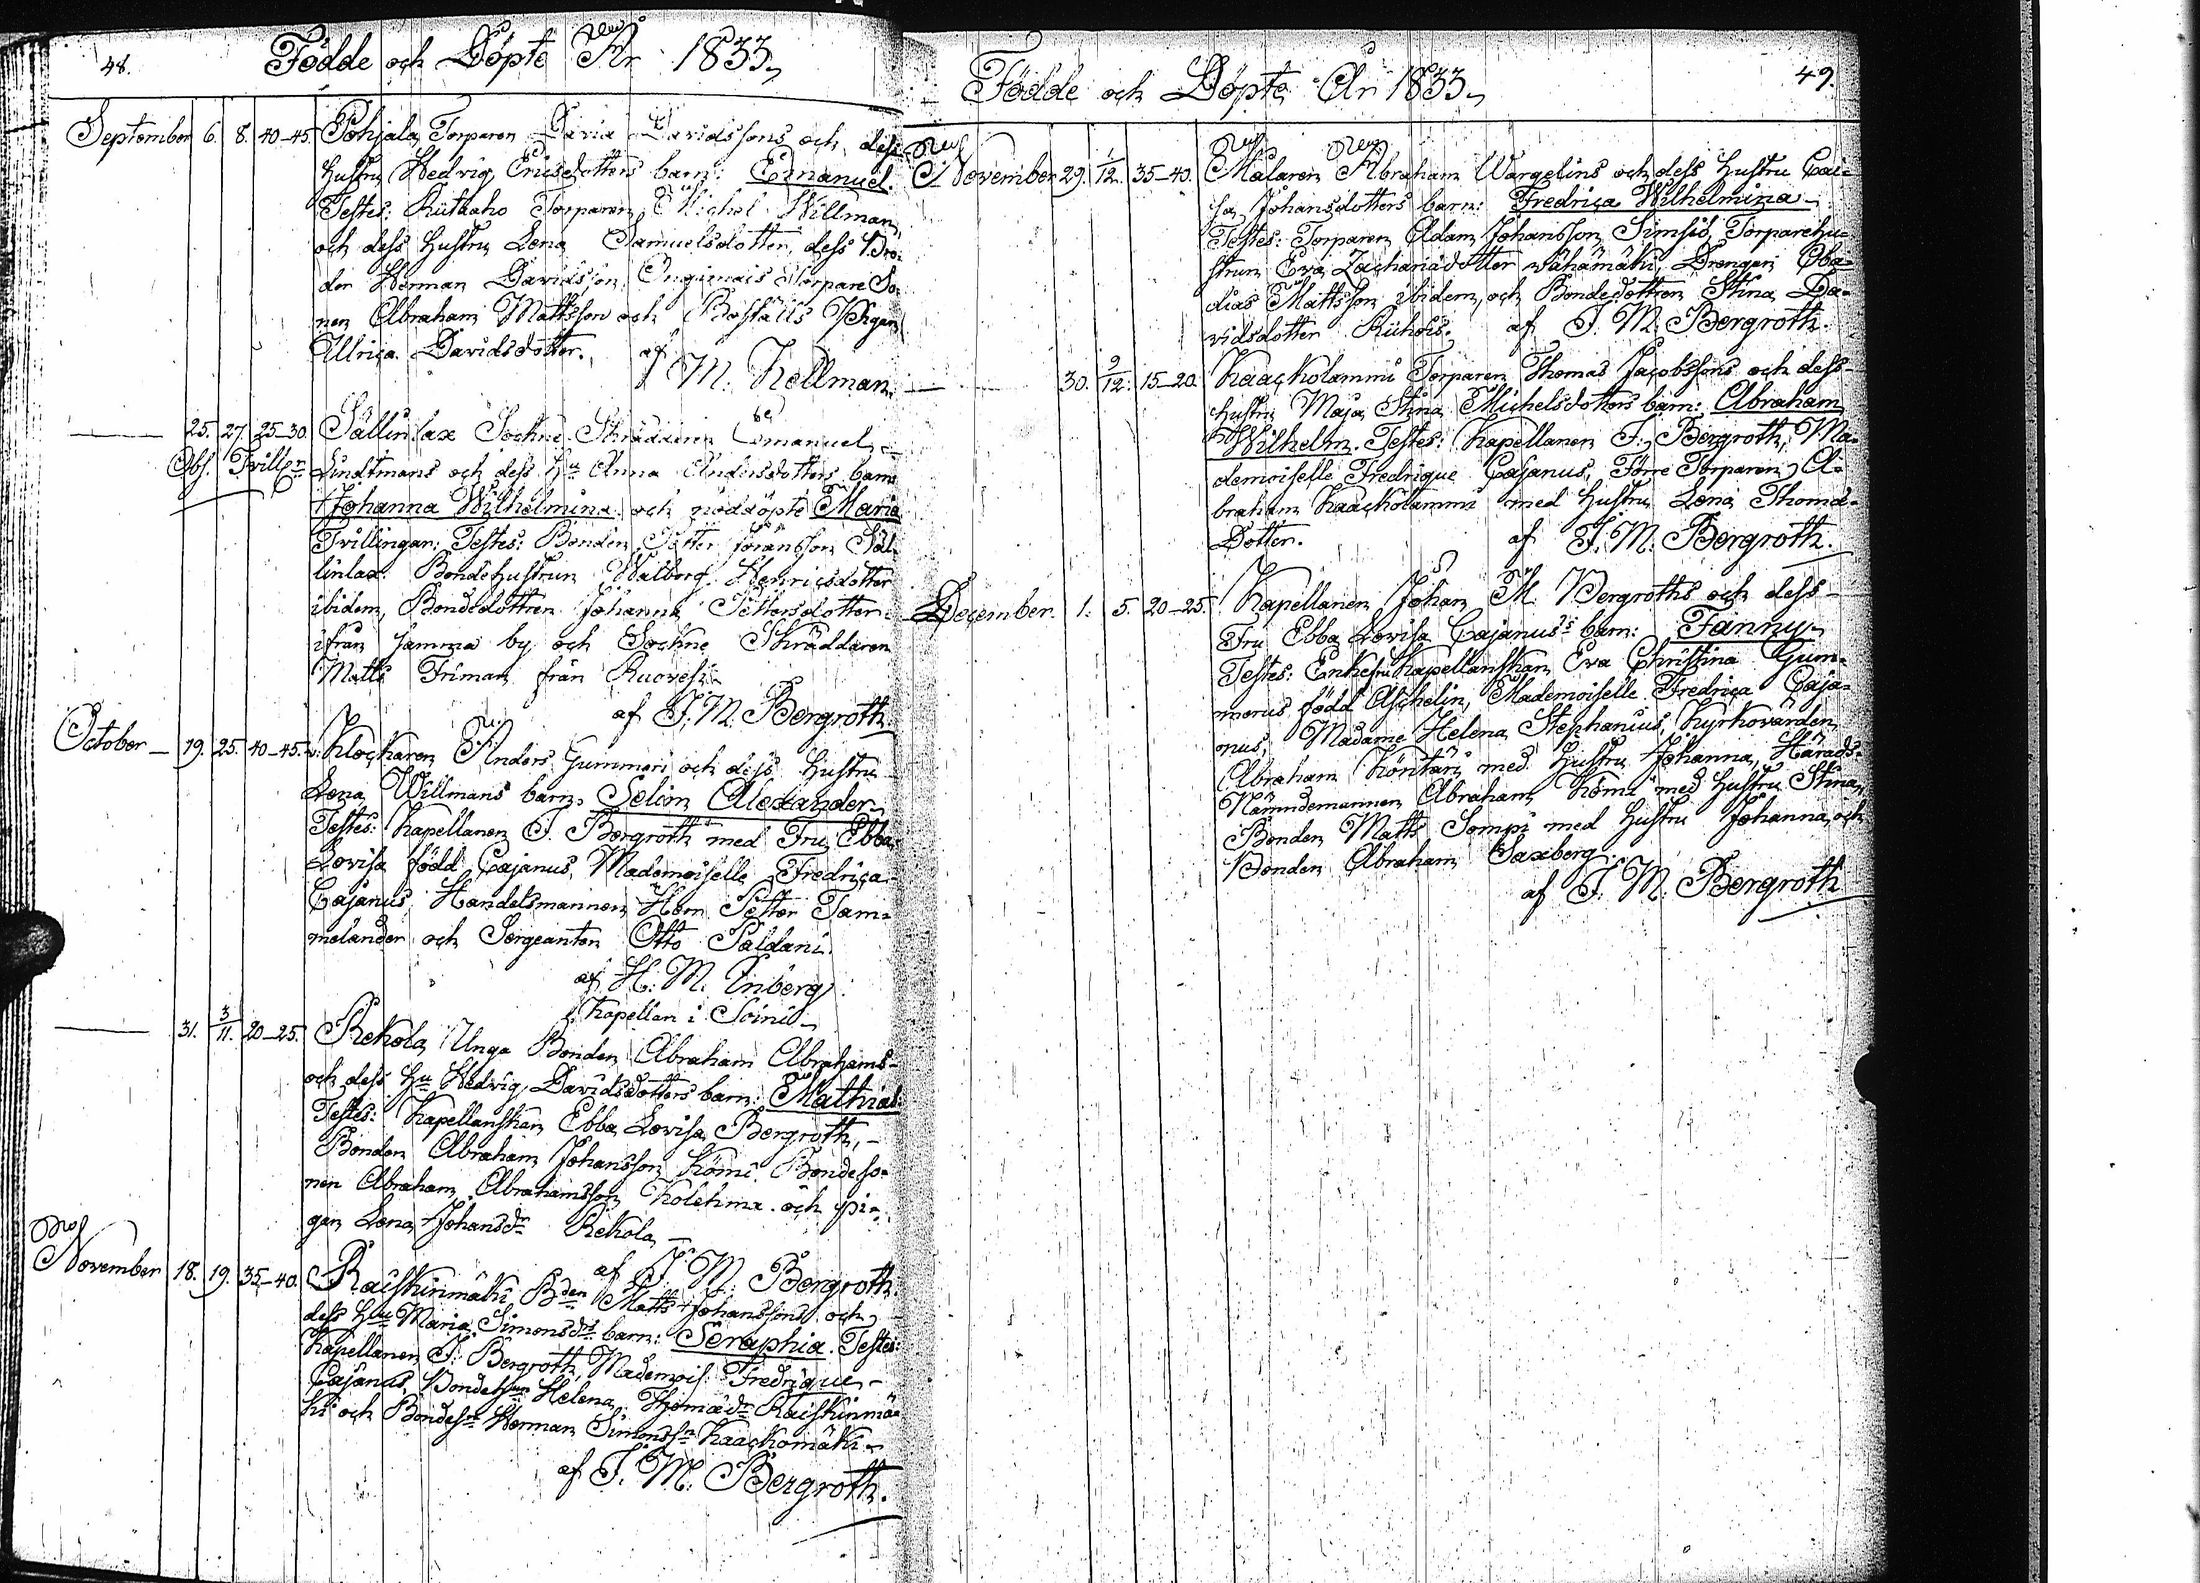 48.
Födde och Döpte År 1833.
September 6. 8. 40-45. Pohjala, Torparen David Davidssons och dess
hustru Hedvig Ericsdotters barn: Emanuel.
Testes: Riitaaho Torparen, Michel Willman,
och dess hustru Lena Samuelsdotter, dess Bro-
der Herman Davidsson, Ongimais Torpare So-
nen Abraham Mattsson och Boställs Pigan
Ulrica Davidsdotter. af
M. Hellman.
25. 27. 25-30. Sällinlax Sockne Skräddaren Emanuel
Obs. Tvill:r Lindtmans och dess Hu Anna Andersdotters barn
Johanna Wilhelmina och nöddöpte Maria
Tvillingar. Testes: Bonden Petter Jöransson Säl-
linlax. Bondehustrun Walborg Henricsdotter
ibidem, Bondedottren Johanna Pettersdotter
ifrån samma by och Sockne Skräddaren
Matts Friman från Ruovesi.
af J. M. Bergroth
October 19. 25. 40-45. Klockaren Anders Gummeri och dess hustru
Lena Willmans barn. Selim Alexander
Testes: Kapellanen J. Bergroth med Fru Ebba
Lovisa född Cajanus, Mademoiselle Fredrica
Cajanus, Handelsmannen Herr Petter Tam-
melander och Sergeanten Otto Paldani.
af H. M. Enberg
Kapellan i Soini
31. 3/11. 20-25. Rekola Unga Bonden Abraham Abrahams-
och dess Hu Hedvig Davidsdotters barn: Mathias.
Testes: Kapellanskan Ebba Lovisa Bergroth,
Bonden Abraham Johansson Kömi Bondeso-
nen Abraham Abrahamsson Kolehma och pi-
gan Lena Johansdr Rekola
af J. M. Bergroth
November 18. 19. 35-40. Raiskinmäki Bden Matts Johanssons och
dess Hu Maria Simonsdrs barn: Seraphia. Testes:
Kapellanen J. Bergroth, Mademois. Fredrique
Cajanus, Helena Thomædr Raiskinmä-
ki och Herman Simonssn Kaackomäki
af J. M. Bergroth.
Födde och Döpte År 1833
49.
November 29. 1/12. 35-40. Målaren Abraham Wargelins och dess hustru Cai-
sa Johansdotters barn: Fredrica Wilhelmina
Testes: Torparen Adam Johansson Simsiö, Torparehu-
strun Eva Zachariædotter Vähämäki, Drengen Oba-
dias Mattsson ibidem, och Bondedottren Stina Da-
vidsdotter Riihois. af J. M. Bergroth.
30. 2/12. 15-20. Kaackolammi Torparen Thomas Jacobssons och dess
hustru Maja Stina Michelsdotters barn: Abraham
Wilhelm. Testes: Kapellanen J. Bergroth, Ma-
demoiselle Fredrique Cajanus, Förre Torparen A-
braham Kaackolammi med hustru Lena Thomæ-
Dotter. af J. M. Bergroth.
December. 1. 5. 20-25. Kapellanen Johan M. Bergroths och dess
Fru Ebba Lovisa Cajanus's barn: Fanny
Testes: Enkefru Kapellanskan Eva Christina Gum-
merus född Aschelin, Mademoiselle Fredrica Caja-
nus, Madame Helena Stephanius, Kyrkovärden
Abraham Köntäri med hustru Johanna, Härads-
Nämndemannen Abraham Kömi med hustru Stina,
Bonden Matts Sompi med hustru Johanna, och
Bonden Abraham Saxberg.
af J. M. Bergroth